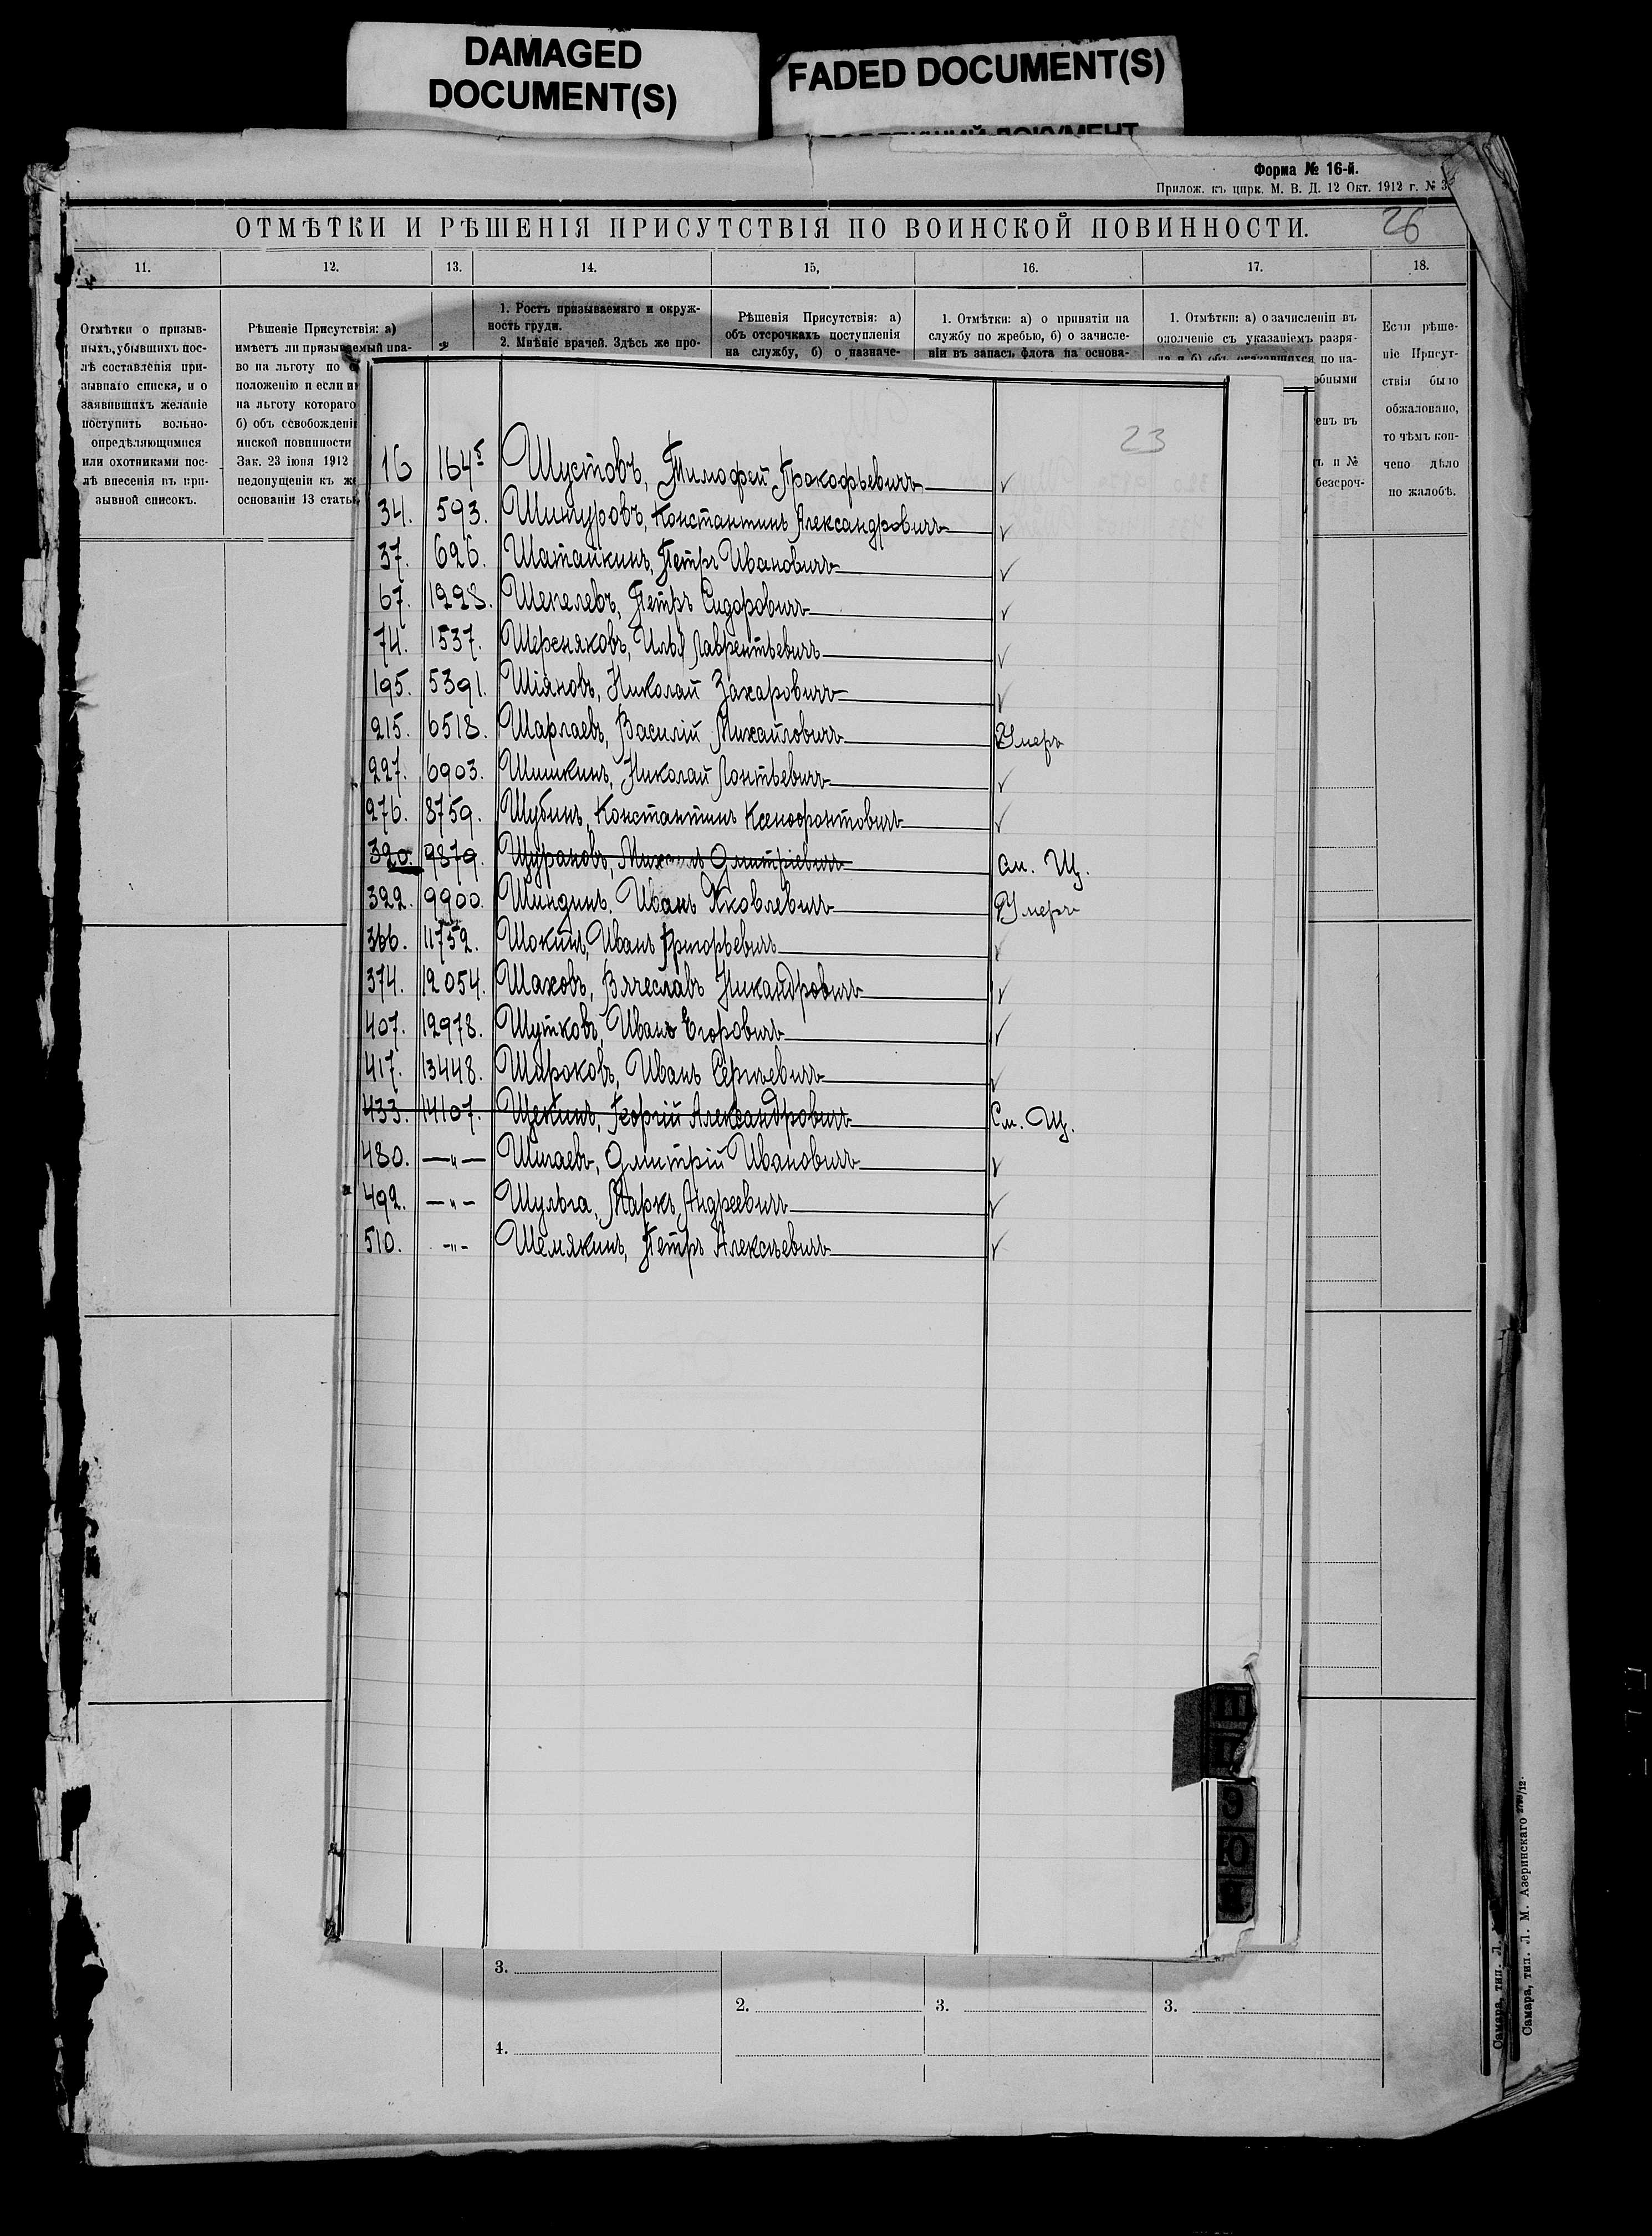 DAMAGED
DOCUMENT(S)
FADED DOCUMENT(S)
Форма № 16-й.
Прилож. къ цирк. М. В. Д. 12 Окт. 1912 г. №
26
ОТМѢТКИ И РѢШЕНІЯ ПРИСУТСТВІЯ ПО ВОИНСКОЙ ПОВИННОСТИ.
11. 12. 13. 14. 15, 16. 17. 18.
Отмѣтки о призыв-
ныхъ, убывшихъ пос-
лѣ составленія при-
зывнаго списка, и о
заявившихъ желаніе
поступить вольно-
опредѣляющимися
или охотниками пос-
лѣ внесенія въ при-
зывной списокъ.
Рѣшеніе Присутствія: а)
имѣетъ ли призываемый пра-
во на льготу по
положенію и если
на льготу котораго
б) объ освобожденіи
инской повинности
Зак. 23 іюня 1912
недопущеніи къ
основаніи 13 статьи
1. Ростъ призываемаго и окруж-
ность груди.
2. Мнѣніе врачей. Здѣсь же про-
Рѣшенія Присутствія: а)
объ отсрочкахъ поступленія
на службу, б) о назначе-
1. Отмѣтки: а) о принятіи на
службу по жребью, б) о зачисле-
ніи въ запасъ флота на основа-
1. Отмѣтки: а) о зачисленіи въ
ополченіе съ указаніемъ разря-
да и б) объ оказавшихся по на-
Если рѣше-
ніе Присут-
ствія было
обжаловано,
то чѣмъ кон-
чено дѣло
по жалобѣ.
23
16 1645 Шустовъ, Тимофей Прокофьевичъ ✓
34. 593. Шингуровъ, Константинъ Александровичъ ✓
37. 626. Шаташкинъ, Петръ Ивановичъ ✓
67. 1228. Шепелевъ, Петръ Сидоровичъ ✓
74. 1537. Шерсняковъ, Илья Лаврентьевичъ ✓
195. 5391. Шіяновъ, Николай Захаровичъ ✓
215. 6518. Шарлаевъ, Василій Михайловичъ Умеръ
227. 6903. Шишкинъ, Николай Лонтьевичъ ✓
276. 8759. Шубинъ, Константинъ Ксенофонтовичъ ✓
320. 9879. Щурановъ, Михаилъ Дмитріевичъ См. Щ.
322. 9900. Шиндинъ, Иванъ Яковлевичъ Умеръ
366. 11752. Шокинъ, Иванъ Григорьевичъ ✓
374. 12054. Шаховъ, Вячеславъ Никандровичъ ✓
407. 12978. Шутковъ, Иванъ Егоровичъ ✓
417. 13448. Шароковъ, Иванъ Сергѣевичъ ✓
433. 14107. Щекинъ, Георгій Александровичъ См. Щ.
480. —"— Шигаевъ, Дмитрій Ивановичъ ✓
492. —"— Шульга, Маркъ Андреевичъ ✓
510. -"- Шемякинъ, Петръ Алексѣевичъ ✓
3.
2. 3. 3.
4.
Самара, тип. Л.
Самара, тип. Л. М. Азеринскаго